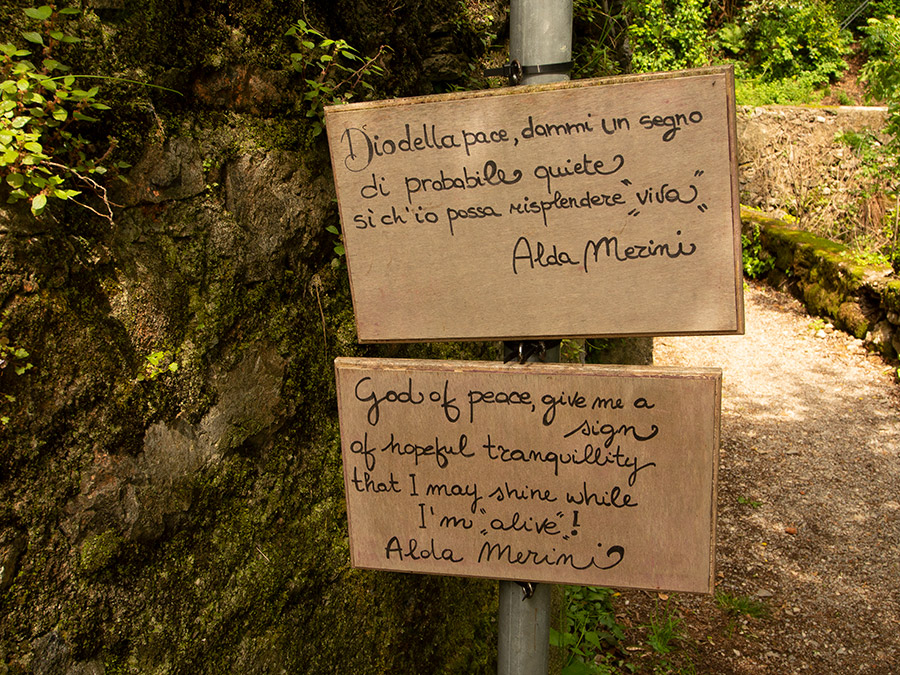 Dio della pace, dammi un segno
di probabile quiete
si ch'io possa risplendere "viva"
Alda Merini
God of peace, give me a
sign
of hopeful tranquillity
that I may shine while
I'm "alive"!
Alda Merini